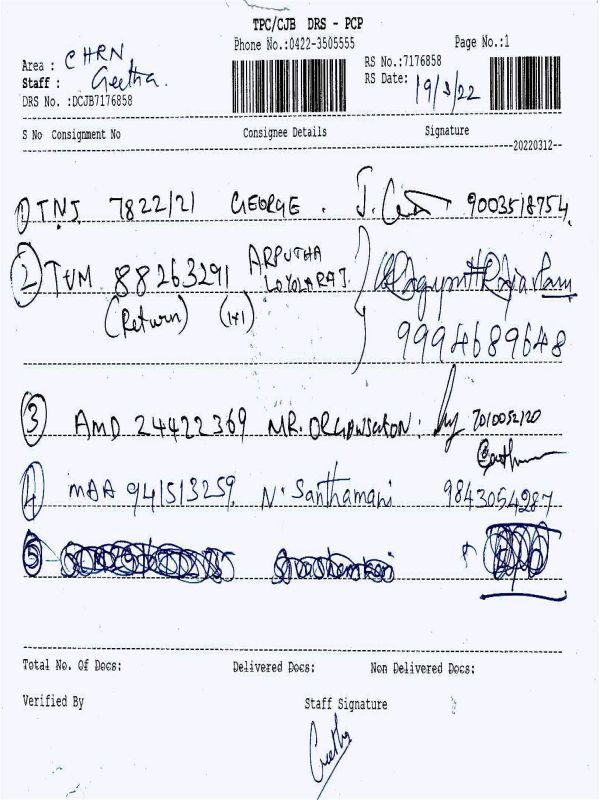 TPC/CJB DRS - PCP
Phone No.:0422-3505555
Page No.:1
Area : CHRN
Staff : Geetha.
DRS No. :DCJB7176858
RS No.:7176858
RS Date: 19/3/22
S No Consignment No Consignee Details Signature
20220312
① TNJ 7822/21 GEORGE . 9003518754
② TVM 88263291 ARPUTHA
LOYOLARAJ.
(Return) (1+1)
9994689648
③ AMD 24422369 MR. 7010052120
④ MAA 941513259 N. Santhamani 9843054287
⑤
Total No. Of Docs: Delivered Docs: Non Delivered Docs:
Verified By Staff Signature
Geetha